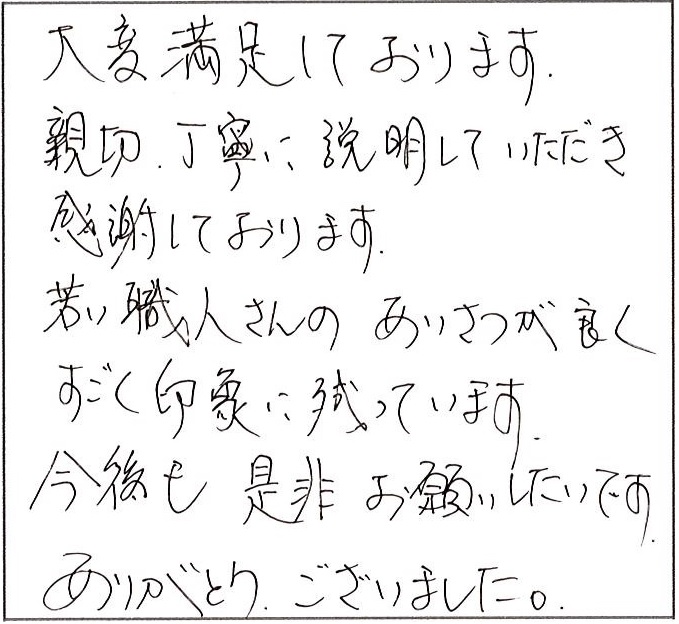 大変満足しております.
親切.丁寧に説明していただき
感謝しております.
若い職人さんの あいさつが良く
すごく印象に残っています.
今後も 是非 お願いしたいです.
ありがとう.ございました。